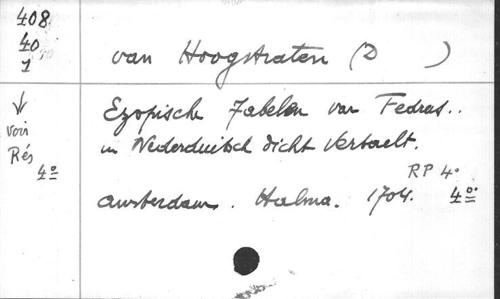 408
40
1
van Hoogstraten (D )
↓
voir
Rés
4º
Ezopische Fabelen van Fedrus..
in Nederduitsch dicht vertaelt.
RP 4º
Amsterdam. Halma. 1704. 4º